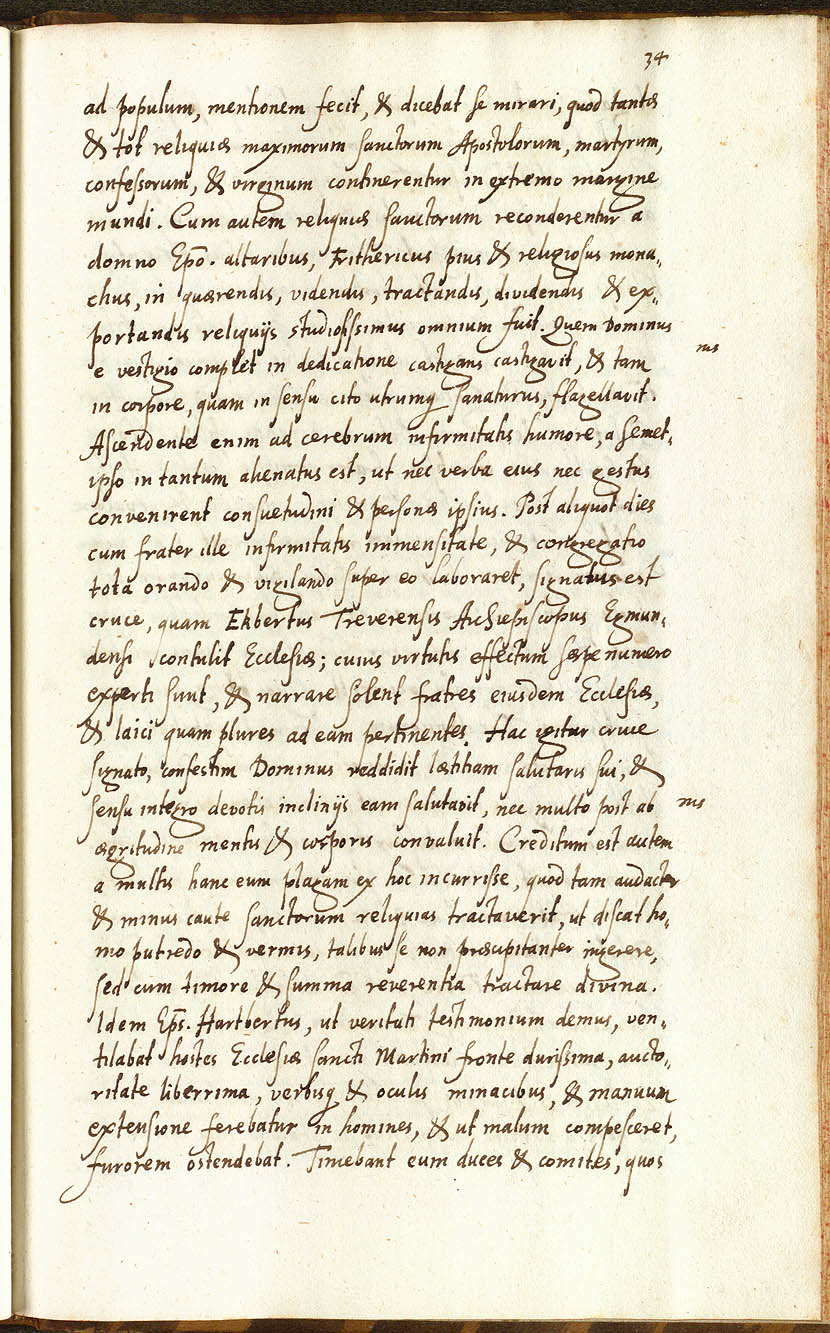 34
ad populum, mentionem fecit, & dicebat se mirari, quod tantæ
& tot reliquiæ maximorum sanctorum Apostolorum, martyrum,
confessorum, & virginum continerentur in extremo margine
mundi. Cum autem reliquiæ sanctorum reconderentur a
domno Epõ. altaribus, Frithericus pius & religiosus mona-
chus, in quærendis, videndis, tractandis, dividendis & ex-
portandis reliquijs studiosissimus omnium fuit. Quem Dominus
e vestigio complet in dedicatione castigans castigavit, & tam
ms
in corpore, quam in sensu cito utrumq sanaturus, flagellavit.
Ascendente enim ad cerebrum infirmitatis humore, a semet-
ipso in tantum alienatus est, ut nec verba eius nec gestus
convenirent consuetudini & personæ ipsius. Post aliquot dies
cum frater ille infirmitatis immensitate, & congregatio
tota orando & vigilando super eo laboraret, signatus est
cruce, quam Ekbertus Treverensis Archiepiscopus Egmun-
densi contulit Ecclesiæ; cuius virtutis effectum sæpe numero
experti sunt, & narrare solent fratres eiusdem Ecclesiæ,
& laici quam plures ad eam pertinentes. Hac igitur cruce
signato, confestim Dominus reddidit lætitiam salutaris sui, &
sensu integro devotis inclinijs eam salutavit, nec multo post ab
ms
ægritudine mentis & corporis convaluit. Creditum est autem
a multis hanc eum plagam ex hoc incurrisse, quod tam audacter
& minus caute sanctorum reliquias tractaverit, ut discat ho-
mo putredo & vermis, talibus se non præcipitanter ingerere,
sed cum timore & summa reverentia tractare divina.
Idem Eps. Hartbertus, ut veritati testimonium demus, ven-
tilabat hostes Ecclesiæ sancti Martini fronte durissima, aucto-
ritate liberrima, verbisq & oculis minacibus, & manuum
extensione ferebatur in homines, & ut malum compesceret,
furorem ostendebat. Timebant eum duces & comites, quos